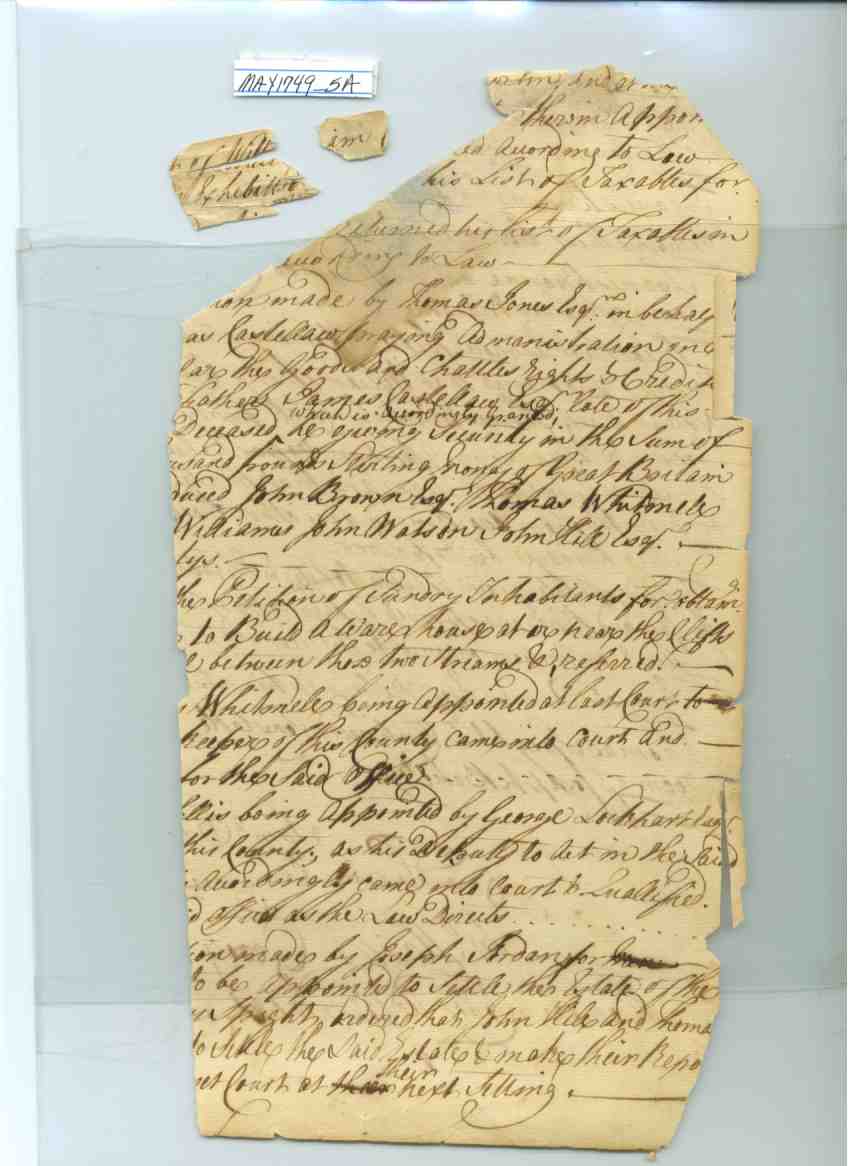 MAY1749_5A
therein Appon
ed According to Law
his List of Taxables for
of Will
im
Exhibitt
eturned his List of Taxables in
ccording to Law
ion made by Thomas Jones Esqr. in behalf
as Castellaw, praying Admanistration on
lar the Goods and Chattles rights & Credits
Father James Castellaw Esqr. late of this
which is accordingly granted,
Deceased, he giving Security in the Sum of
usand pounds Sterling money of Great Britain
duced John Brown Esqr. Thomas Whitmele
Williams John Watson John Hill Esqr.
tys.
he Petition of Sundry Inhabitants for obtaing.
to Build a Ware house at or near the Clifts
e between the two Streams &c, referred.
Whitmele being appointed at last Court to
keeper of this County came into Court and
for the Said Office
llis being appointed by George Lockhart Esqr
this County, as his Deputy to Act in the Said
Accordingly came into Court & Quallified.
d office as the Law Directs
ion made by Joseph Jordan for
to be appointed to Settle the Estate of
Speight, ordered that John Hill and Thoma
to Settle the Said Estate & make their Repo
et Court at their next Sitting.